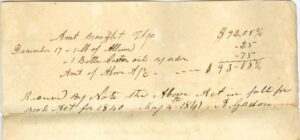 Amt Brought Up $92.08¾
December 17 - 1 lb of Allum .25
" 1 Bottle Castor oil .75
Amt of Above A/C $93.08¾
Recd by Note the Above Act in full for
Book Act for 1840 May 4th 1841